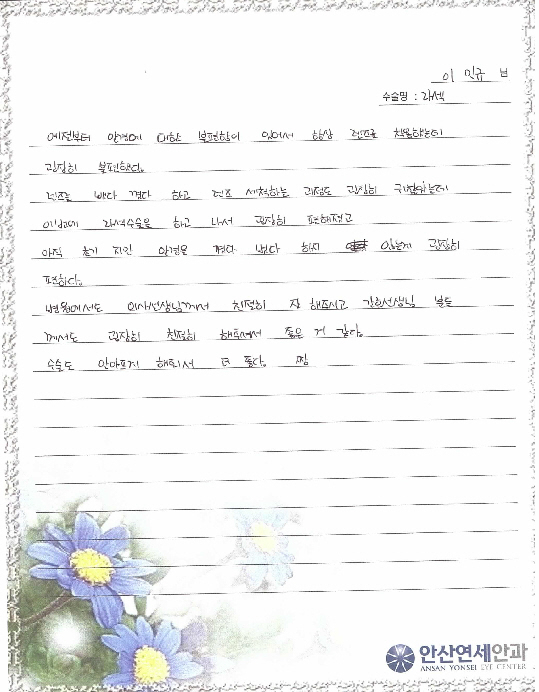 이 민규 님
수술명 : 라섹
예전부터 안경에 대한 불편함이 있어서 항상 렌즈를 착용하는데
굉장히 불편했다.
렌즈는 뺐다 꼈다 하고 렌즈 세척하는 과정도 굉장히 귀찮았는데
이번에 라섹수술을 하고 나서 굉장히 편해졌고
아직 초기 지만 안경을 꼈다 벗다 하지 않는게 굉장히
편하다.
병원에서도 의사선생님께서 친절히 잘 해주시고 간호선생님 분들
께서도 굉장히 친절히 해주셔서 좋은 거 같다.
수술도 안아프게 해줘서 더 좋다. 짱
안산연세안과
ANSAN YONSEI EYE CENTER